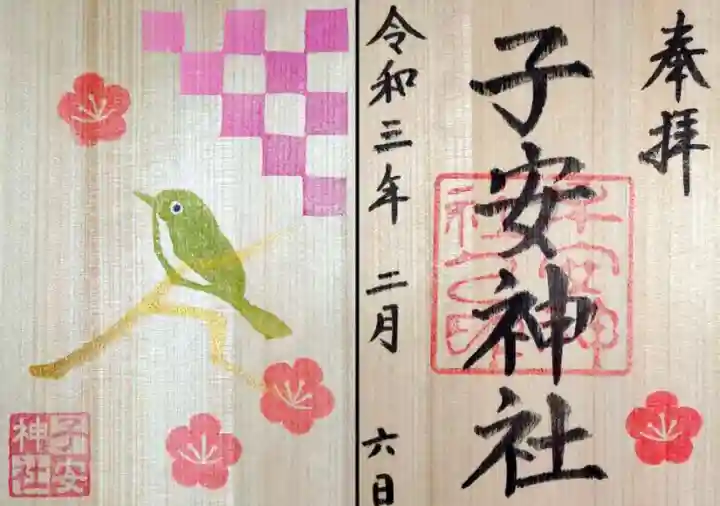 奉拝
子安神社
令和三年 二月 六日
子安
神社